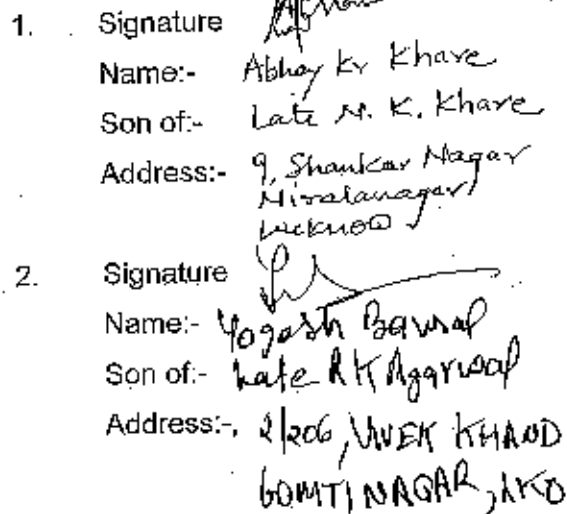 1. Signature
Name:- Abhay Kr Khare
Son of:- Late N. K. Khare
Address:- 9, Shankar Nagar
Niralanagar
Lucknow
2. Signature
Name:- Yogesh Bansal
Son of:- Late R K Aggrwal
Address:-, 2/206, VIVEK KHAND
GOMTI NAGAR, LKO